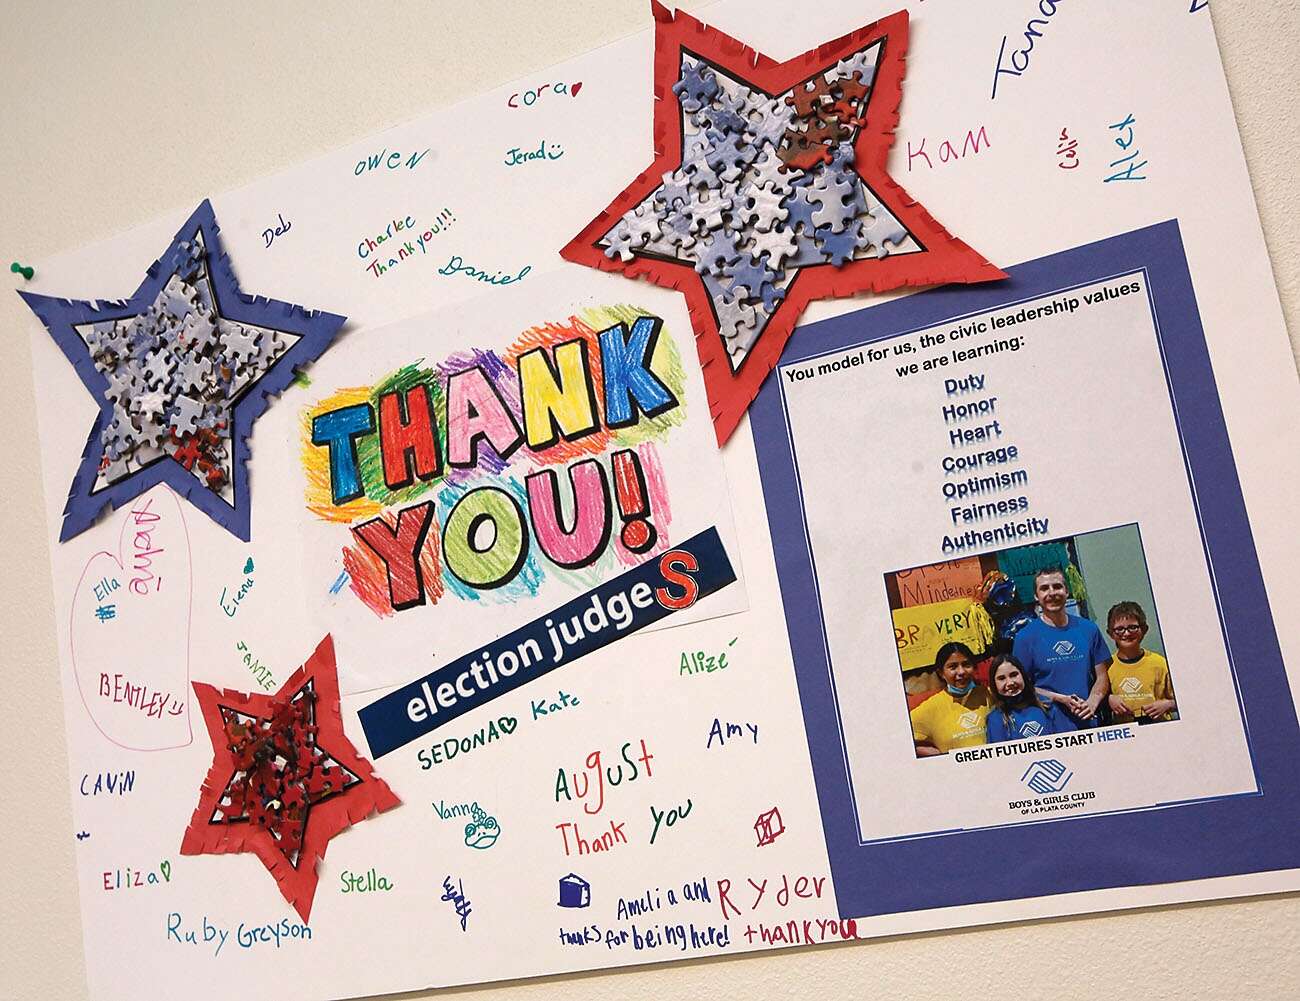 Tana
cora
owen
Jerad
KAM
Alex
Deb
Charlee
Thank you!!!
Daniel
THANK
YOU!
election judgeS
You model for us, the civic leadership values
we are learning:
Duty
Honor
Heart
Courage
Optimism
Fairness
Authenticity
Mindedness
BRAVERY
BOYS & GIRLS CLUB
GREAT FUTURES START HERE.
BOYS & GIRLS CLUB
OF LA PLATA COUNTY
Ella
Elena
JAMIE
BENTLEY
Alizé
Kate
SEDONA
Amy
August
Thank you
CAVIN
Vanna
Eliza
Stella
Wyatt
Ruby Greyson
Amelia and Ryder
thanks for being here! thank you